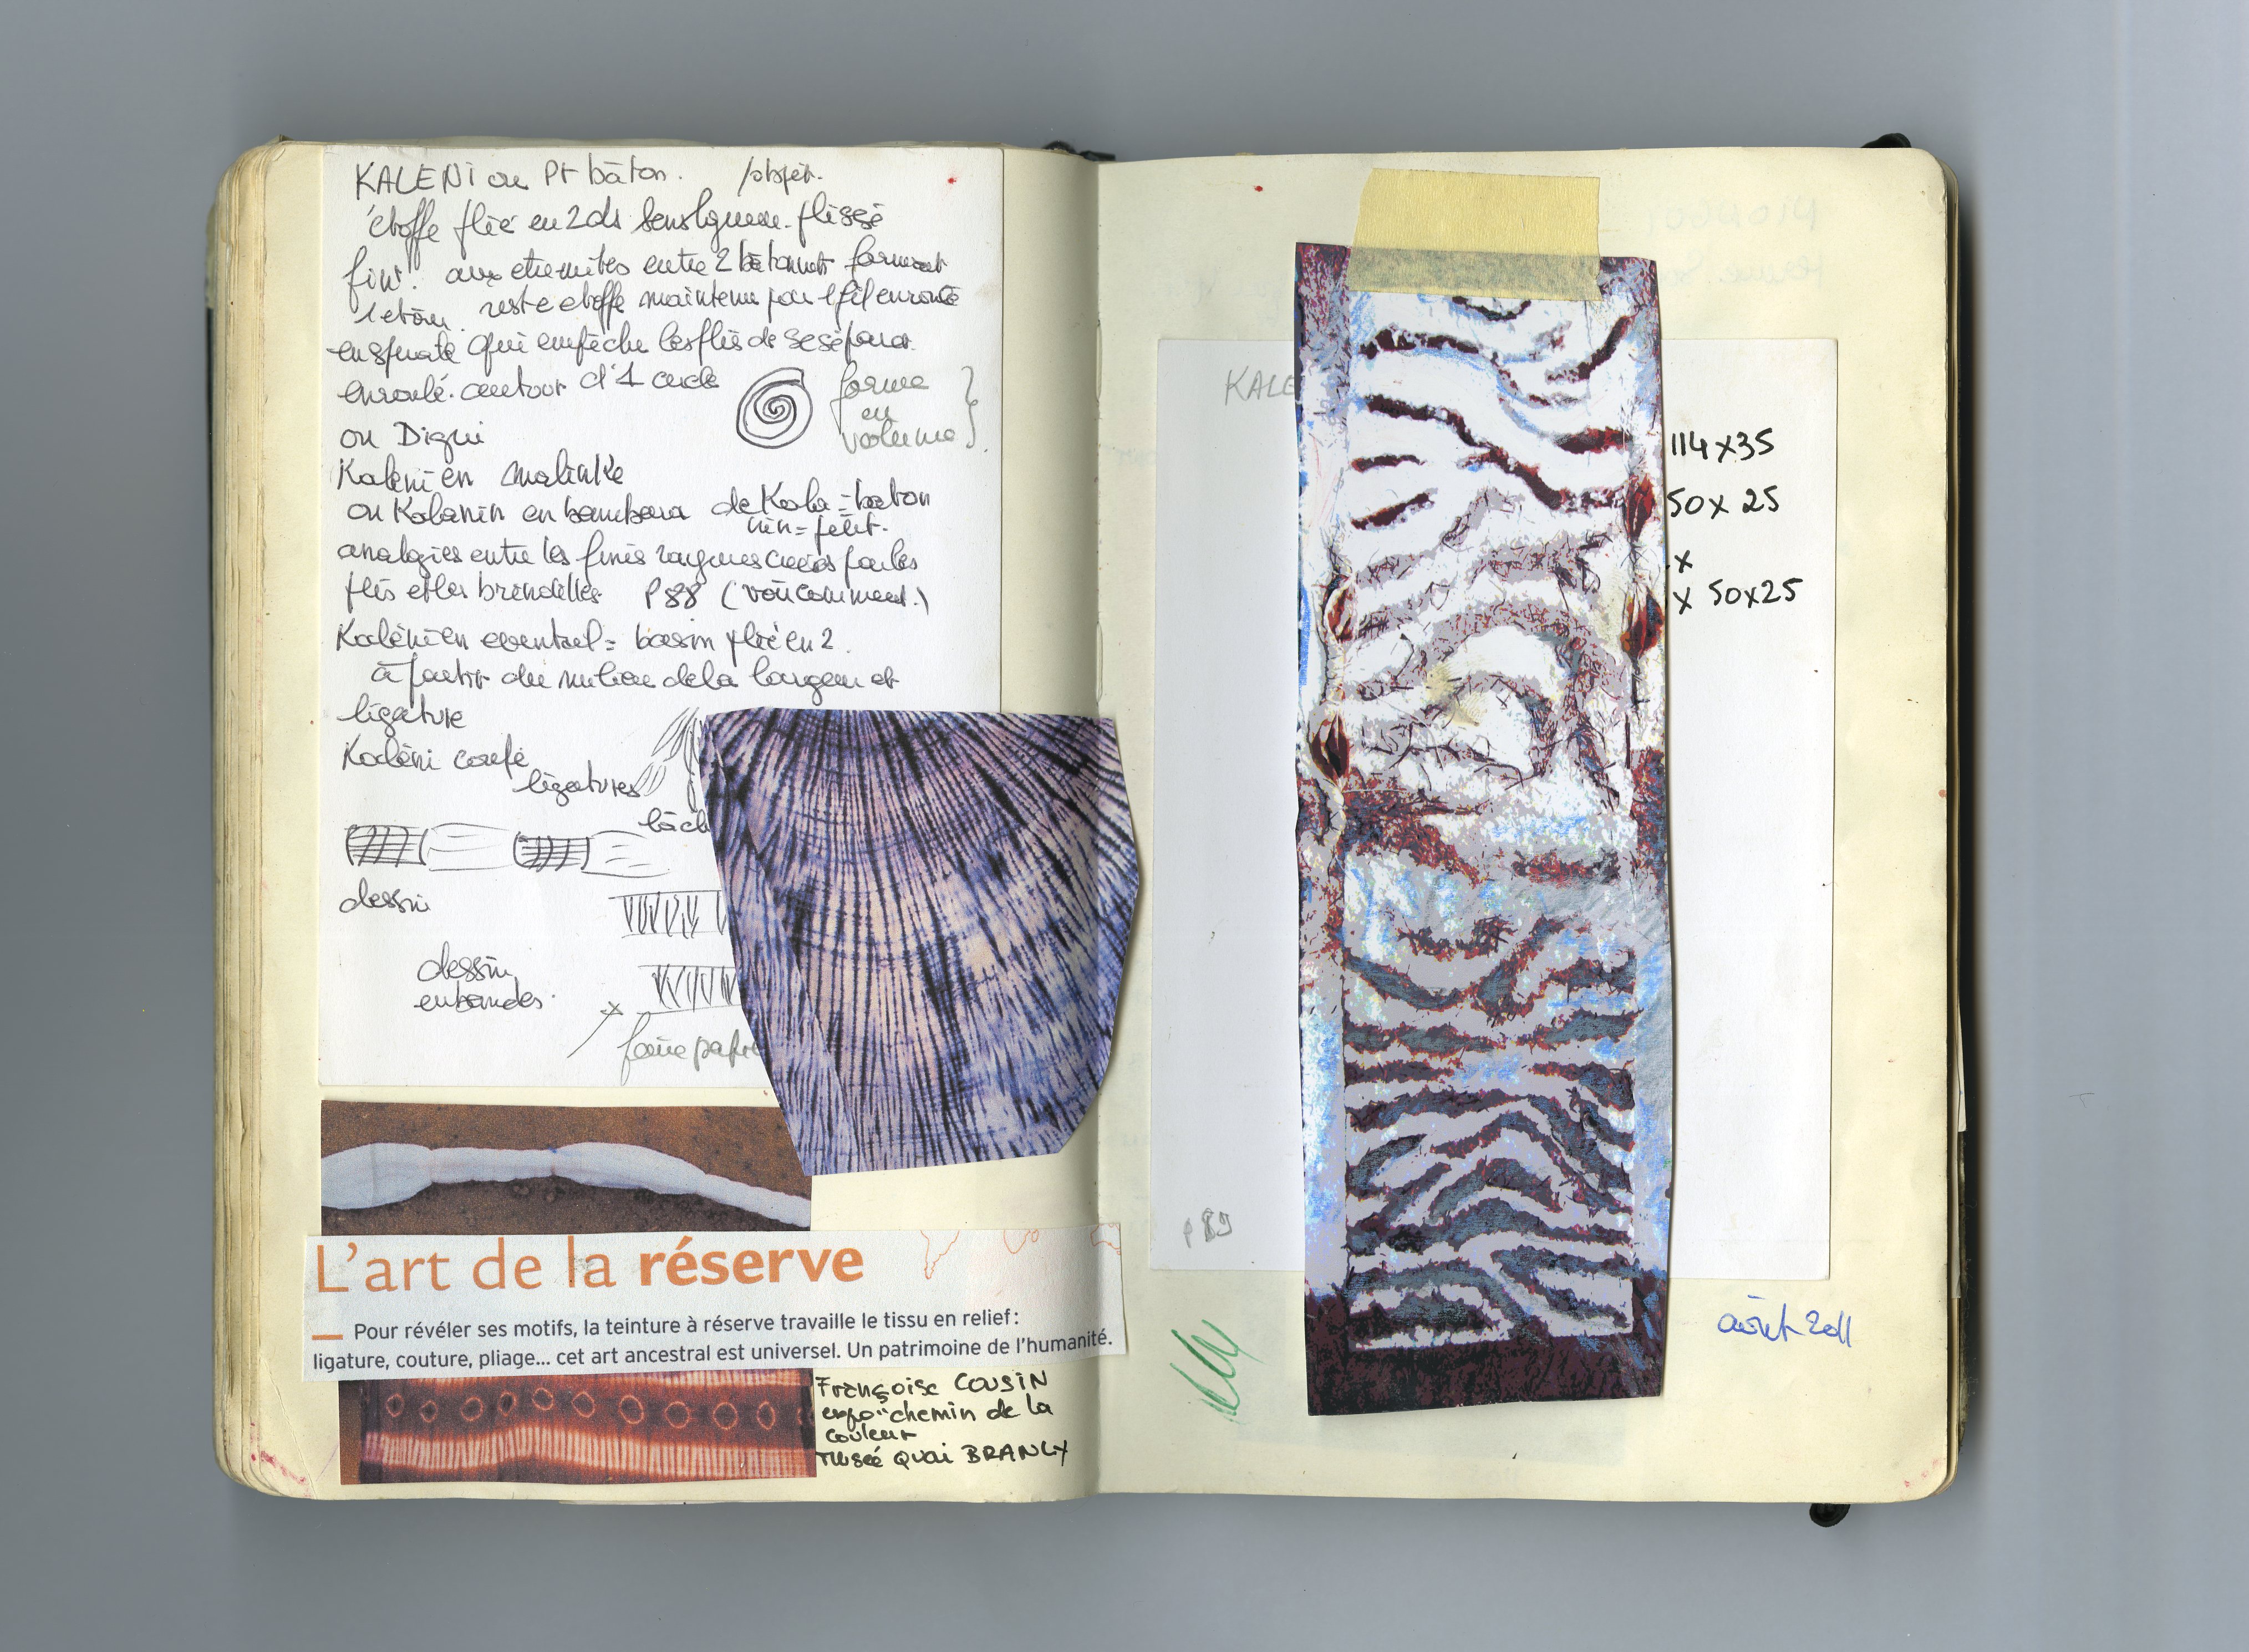 KALENI ou Pt bâton. /objet.
étoffe pliée en 2 ds sens longueur. plissé
fin. aux extrémités entre 2 bâtonnets formant
reste etoffe maintenu par 1 fil enroulé
en spirale qui empêche les plis de se séparer.
enroulé. autour d'1 cercle
forme
en
volume
ou Digui
Kaleni en malinké
ou Kalanin en bambara de Kala = baton
nin = petit.
analogies entre les fines rayures créées par les
plis et les brindilles P88 (voir comment.)
Kaléni en eventail = basin plié en 2
à partir du milieu de la largeur et
ligature
Kaléni coupé
ligatures
lâch
dessin
dessin
en bandes.
x
faire
L'art de la réserve
Pour révéler ses motifs, la teinture à réserve travaille le tissu en relief :
ligature, couture, pliage... cet art ancestral est universel. Un patrimoine de l'humanité.
Françoise COUSIN
expo "chemin de la
couleur
Musée Quai BRANLY
KALE
114x35
50x 25
x
x 50x25
p 89
août 2011